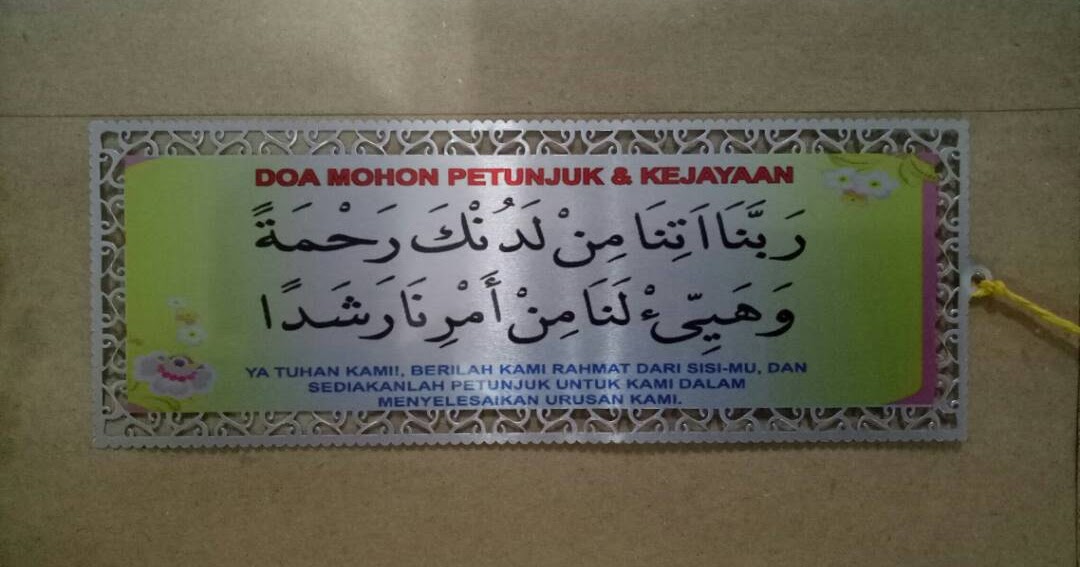 DOA MOHON PETUNJUK & KEJAYAAN
رَبَّنَا اَتِنَا مِنْ لَدُنْكَ رَحْمَةً
وَهَيِّىءْ لَنَا مِنْ أَمْرِنَا رَشَدًا
YA TUHAN KAMI!, BERILAH KAMI RAHMAT DARI SISI-MU, DAN
SEDIAKANLAH PETUNJUK UNTUK KAMI DALAM
MENYELESAIKAN URUSAN KAMI.